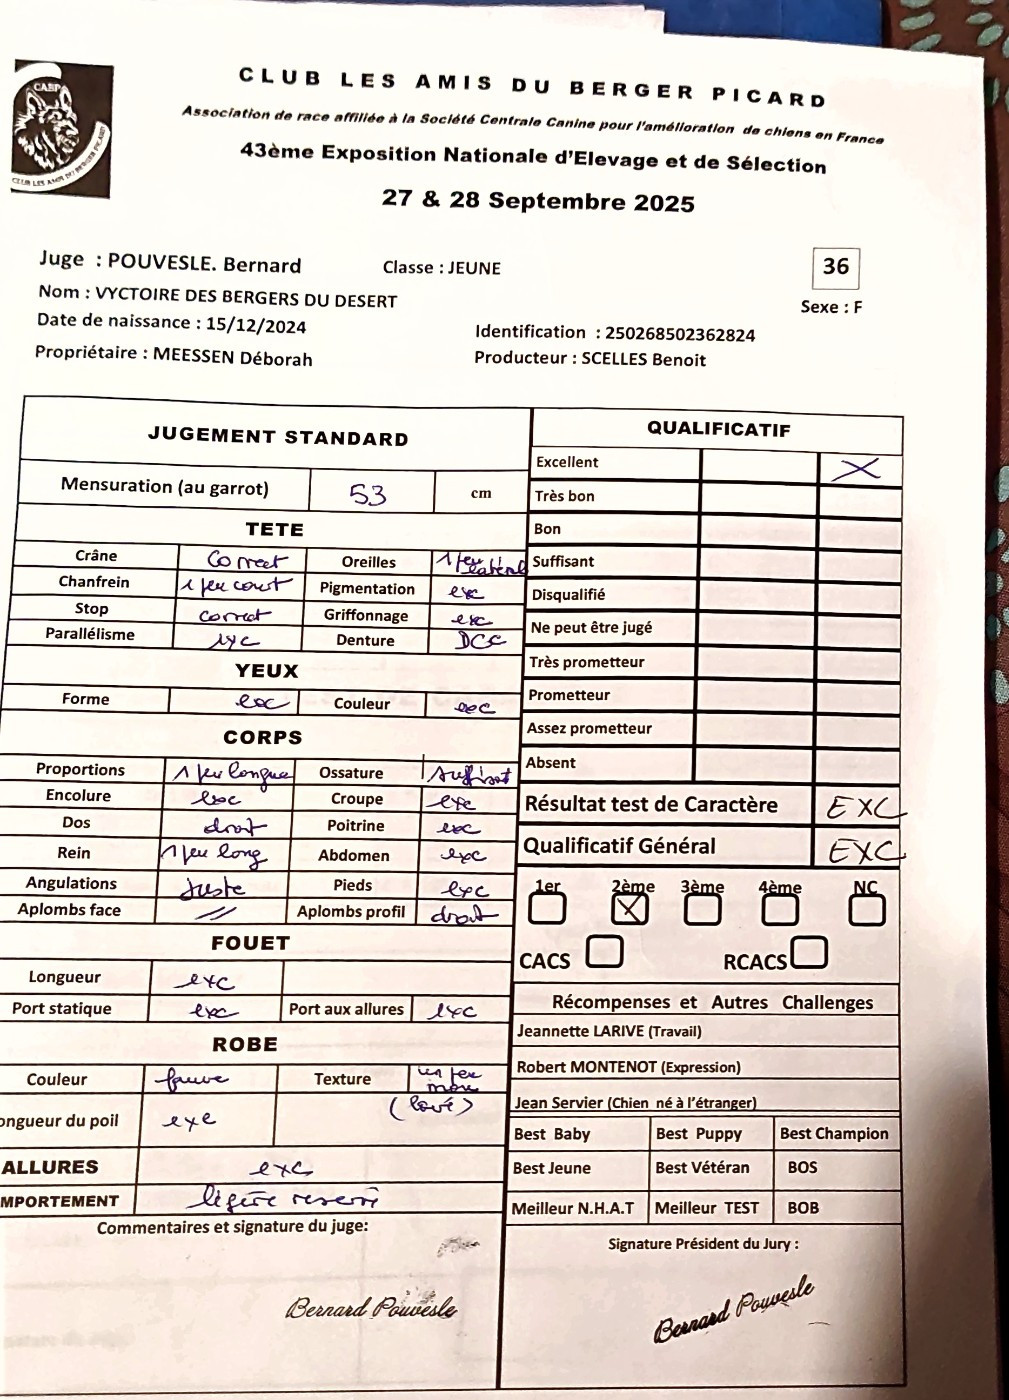 CABP
CLUB LES AMIS DU BERGER PICARD
CLUB LES AMIS DU BERGER PICARD
Association de race affiliée à la Société Centrale Canine pour l'amélioration de chiens en France
43ème Exposition Nationale d'Elevage et de Sélection
27 & 28 Septembre 2025
Juge : POUVESLE. Bernard Classe : JEUNE 36
Nom : VYCTOIRE DES BERGERS DU DESERT Sexe : F
Date de naissance : 15/12/2024 Identification : 250268502362824
Propriétaire : MEESSEN Déborah Producteur : SCELLES Benoit
JUGEMENT STANDARD
Mensuration (au garrot) 53 cm
TETE
Crâne Correct Oreilles 1 peu latéral
Chanfrein 1 peu court Pigmentation exc
Stop correct Griffonnage exc
Parallélisme exc Denture DCC
YEUX
Forme exc Couleur exc
CORPS
Proportions 1 peu longue Ossature suffisat
Encolure exc Croupe exc
Dos droit Poitrine exc
Rein 1 peu long Abdomen exc
Angulations Juste Pieds exc
Aplombs face // Aplombs profil droit
FOUET
Longueur exc
Port statique exc Port aux allures exc
ROBE
Couleur fauve Texture un peu mou
(lavé)
ongueur du poil exc
ALLURES exc
MPORTEMENT légère réservé
Commentaires et signature du juge:
Bernard Pouvesle
QUALIFICATIF
Excellent X
Très bon
Bon
Suffisant
Disqualifié
Ne peut être jugé
Très prometteur
Prometteur
Assez prometteur
Absent
Résultat test de Caractère EXC
Qualificatif Général EXC
1er 2ème 3ème 4ème NC
X
CACS RCACS
Récompenses et Autres Challenges
Jeannette LARIVE (Travail)
Robert MONTENOT (Expression)
Jean Servier (Chien né à l'étranger)
Best Baby Best Puppy Best Champion
Best Jeune Best Vétéran BOS
Meilleur N.H.A.T Meilleur TEST BOB
Signature Président du Jury :
Bernard Pouvesle